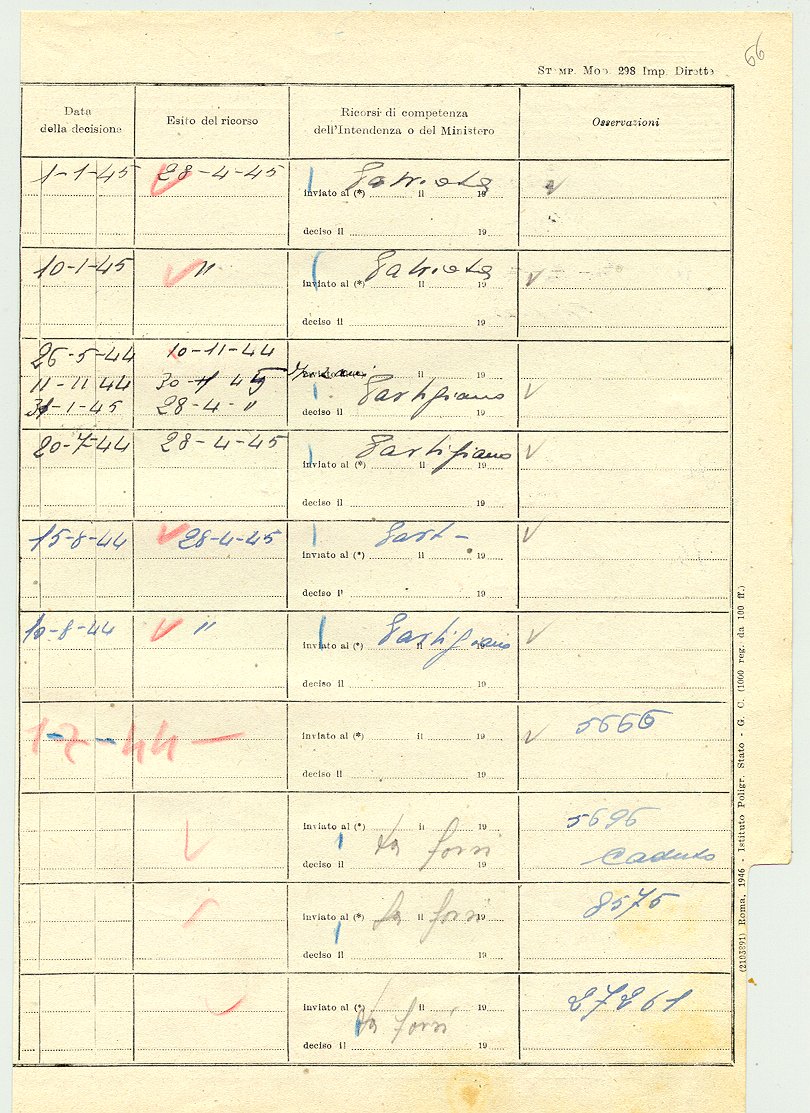 66
STAMP. MOD. 298 Imp. Dirette
Data della decisione
Esito del ricorso
Ricorsi di competenza dell'Intendenza o del Ministero
Osservazioni
1-1-45 28-4-45 Patriota
inviato al (*) il 19
deciso il 19
10-1-45 " Patriota
inviato al (*) il 19
deciso il 19
26-5-44 10-11-44
11-11-44 30-1-45
31-1-45 28-4-" Partigiano
deciso il 19
20-7-44 28-4-45 Partigiano
inviato al (*) il 19
deciso il 19
15-8-44 28-4-45 Part-
inviato al (*) il 19
deciso il 19
10-8-44 " Partigiano
inviato al (*) il 19
deciso il 19
1-7-44 — 5666
inviato al (*) il 19
deciso il 19
inviato al (*) il 19 5696
deciso il 19 Caduto
inviato al (*) il 19 8575
deciso il 19
inviato al (*) il 19 27261
deciso il 19
(2103891) Roma, 1946 - Istituto Poligr. Stato - G. C. (1000 reg. da 100 ff.)